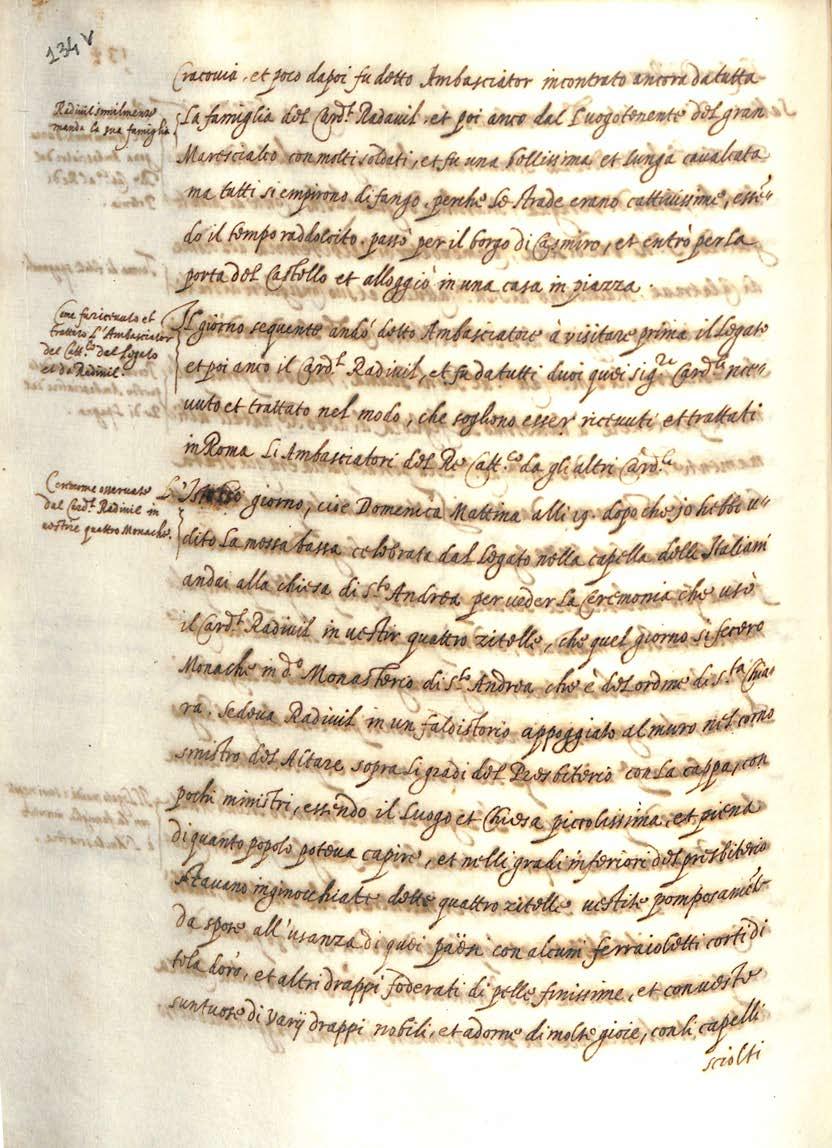 134v
Cracovia, et poco dapoi fu detto Ambasciator incontrato ancora da tutta
Radivil similmente
manda la sua famiglia
La famiglia del Card.l Radavil, et poi anco dal Luogotenente del gran
Marescialco con molti soldati, et fu una bellissima et lunga cavalcata
ma tutti si empirono di fango, perche le strade erano cattivissime, essẽ-
do il tempo raddolcito. passò per il borgo di Casmiro, et entrò per la
porta del Castello et alloggiò in una casa in piazza.
Come fu ricevuto et
trattato L'Ambasciator
del Catt.co dal Legato
et da Radivil.
Il giorno sequente andò detto Ambasciatore à visitare prima il Legato
et poi anco il Card.l Radivil, et fu da tutti duoi quei sig.ri Card.li rice-
vuto et trattato nel modo, che sogliono esser ricevuti et trattati
in Roma li Ambasciatori del Re Catt.co da gl'altri Card.li
Ceremonie osservate
dal Card.l Radivil in
vestire quattro Monache.
L'Istesso giorno, cioè Domenica Mattina alli 19. dopo che jo hebbi u-
dito La messa bassa celebrata dal Legato nella capella delle Italiani
andai alla chiesa di S.to Andrea per veder La Ceremonia che usò
il Card.l Radivil in vestir quattro zitelle, che quel giorno si fecero
Monache in d.o Monasterio di S.to Andrea che è del ordine di S.ta Chia-
ra. Sedeva Radivil in un faldistorio appoggiato al muro nel corno
sinistro del Altare sopra li gradi del Presbiterio con La cappa, con
pochi ministri, essendo il Luogo et Chiesa piccolissima, et piena
di quanto popolo poteva capire, et nelli gradi inferiori del presbiterio
stavano inginocchiate dette quattro zitelle vestite pomposamẽte
da spose all'usanza di quei päesi con alcuni ferraioletti corti di
tela d'oro, et altri drappi foderati di pelle finissime, et con veste
suntuose di varij drappi nobili, et adorne di molte gioie, con li capelli
sciolti